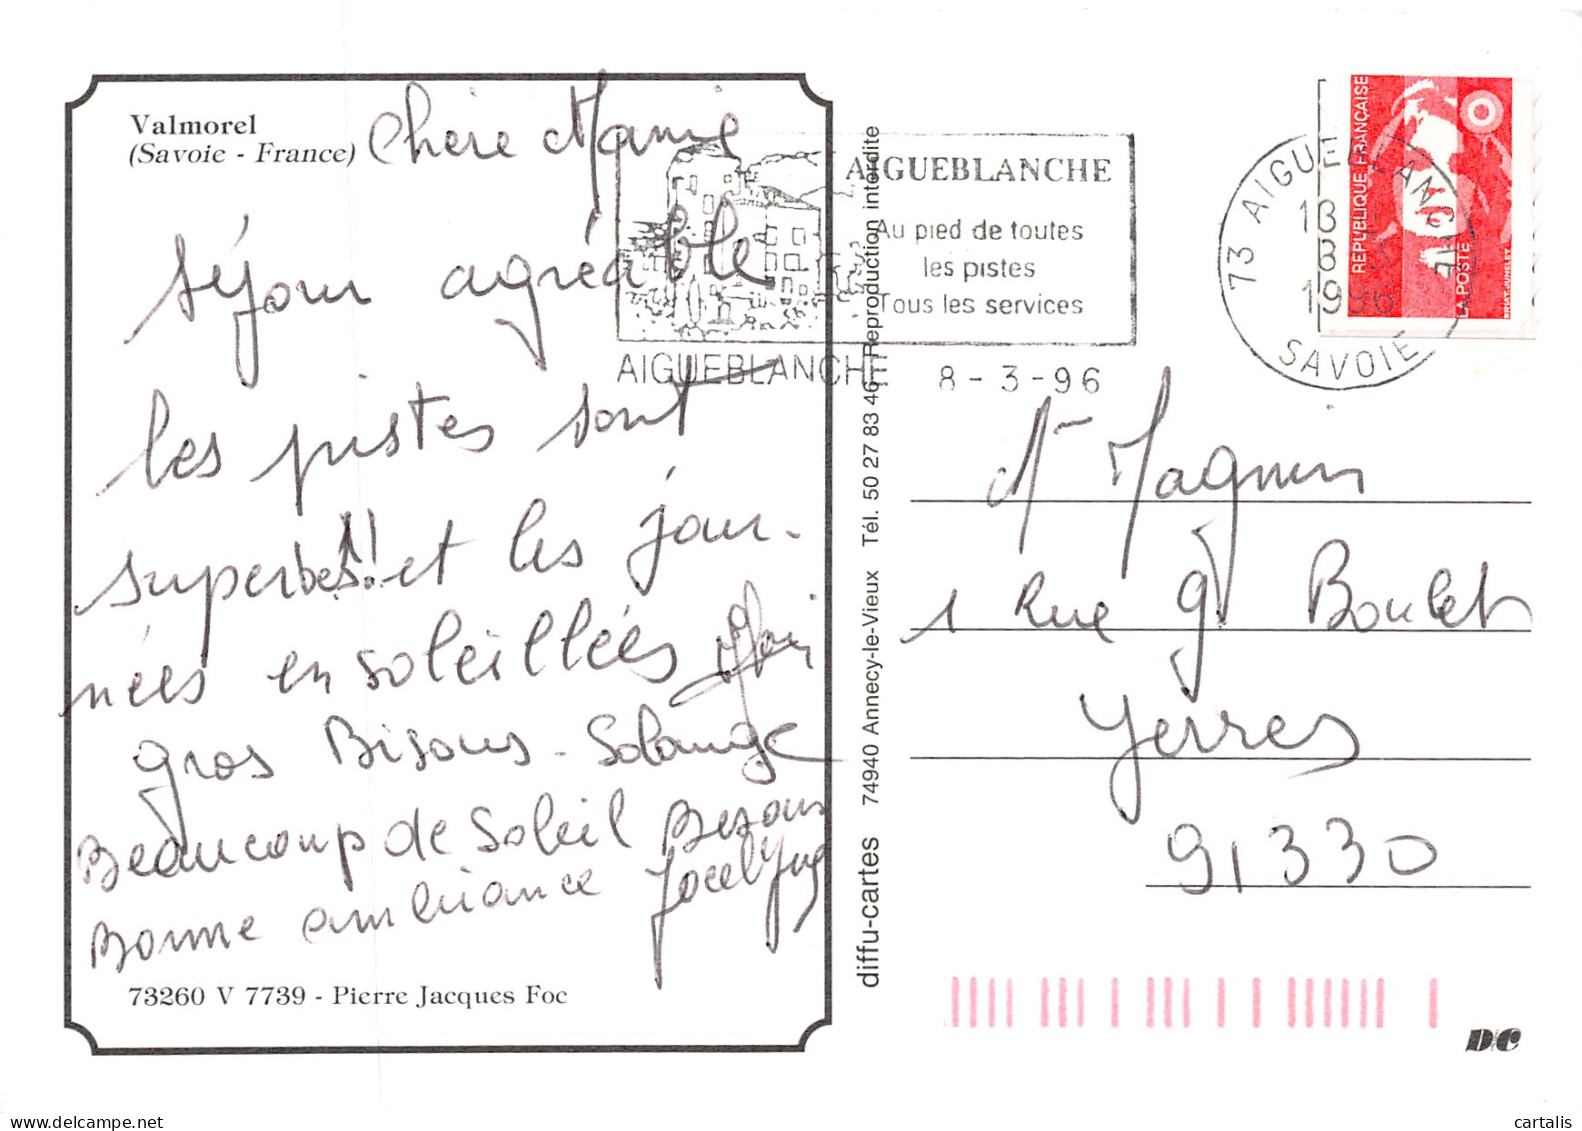 Valmorel
(Savoie - France)
Chère Mamie
séjour agréable
les pistes sont
superbes!! et les jour-
nées ensoleillées
gros Bisous - Solange
Beaucoup de Soleil Bisous
Bonne ambiance Jocelyne
73260 V 7739 - Pierre Jacques Foc
diffu-cartes 74940 Annecy-le-Vieux Tél. 50 27 83 46 Reproduction interdite
AIGUEBLANCHE
Au pied de toutes
les pistes
Tous les services
AIGUEBLANCHE 8 - 3 - 96
73 AIGUEBLANCHE
18 H
8 3
1996
SAVOIE
REPUBLIQUE FRANÇAISE
LA POSTE
BRIAT-JUMELET
Magnin
1 Rue Boulet
Yerres
91330
D/C
cartalis